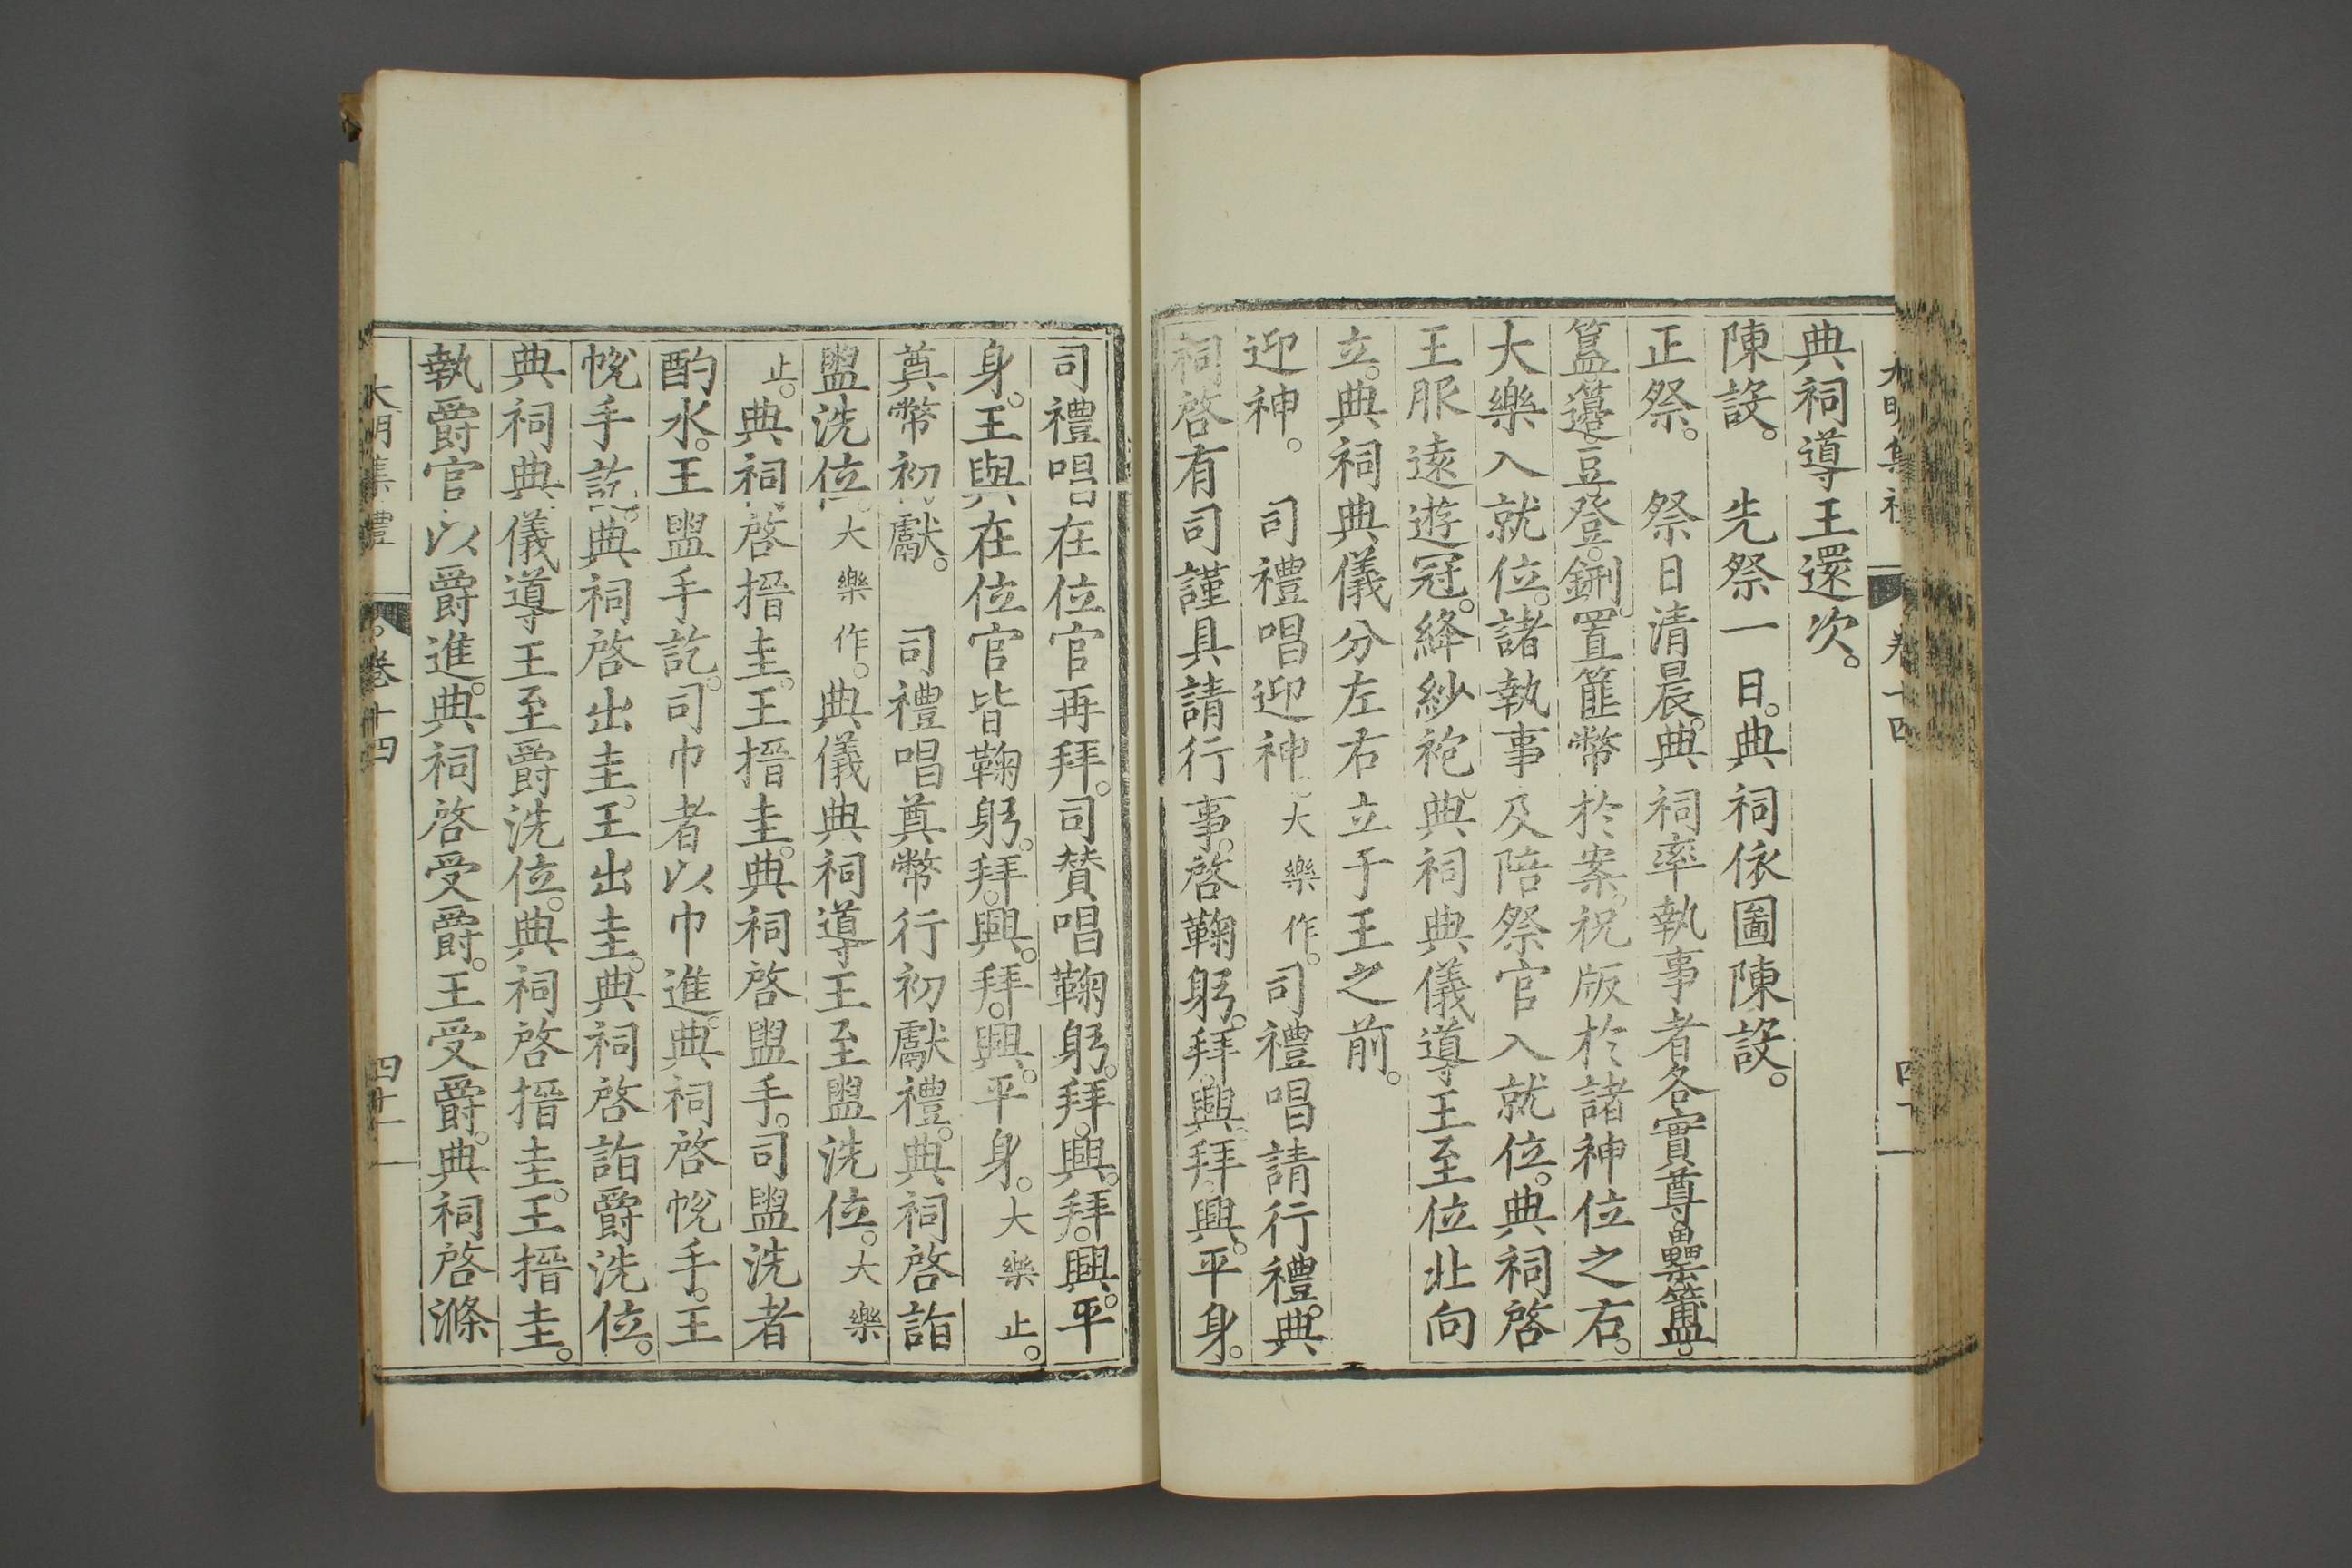 典祠導王還次。
陳設。　先祭一日。典祠依圖陳設。
正祭。　祭日清晨。典祠率執事者各實尊罍簠簋。
簋籩豆登。鉶。置篚幣於案。祝版於諸神位之右。
大樂入就位。諸執事及陪祭官入就位。典祠啓
王服遠遊冠。絳紗袍。典祠典儀導王至位北向
立。典祠典儀分左右立于王之前。
迎神。　司禮唱迎神。大樂作。司禮唱請行禮。典
祠啓有司謹具請行事。啓鞠躬。拜興。拜興。平身。
司禮唱在位官再拜。司贊唱鞠躬。拜。興。拜。興。平
身。王與在位官皆鞠躬。拜。興。拜。興。平身。大樂止。
奠幣初獻。　司禮唱奠幣行初獻禮。典祠啓詣
盥洗位。大樂作。典儀典祠導王至盥洗位。大樂
止。典祠啓搢圭。王搢圭。典祠啓盥手。司盥洗者
酌水。王盥手訖。司巾者以巾進。典祠啓帨手。王
帨手訖。典祠啓出圭。王出圭。典祠啓詣爵洗位。
典祠典儀導王至爵洗位。典祠啓搢圭。王搢圭。
執爵官以爵進。典祠啓受爵。王受爵。典祠啓滌
大明集禮　卷十四　四十一